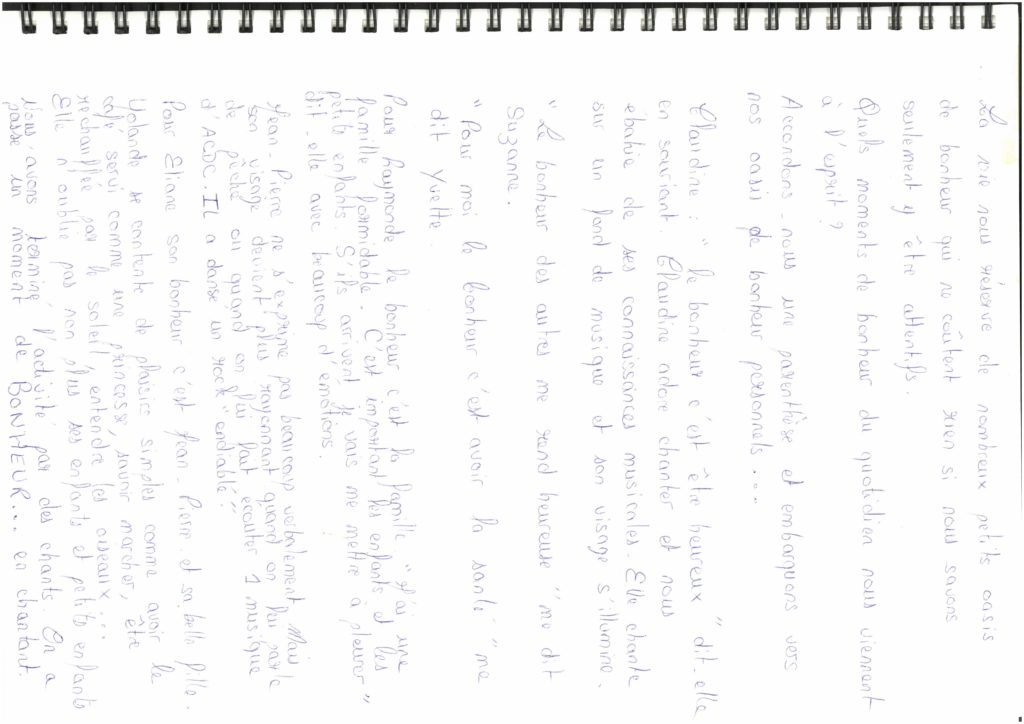 ... La vie nous réserve de nombreux petits oasis
de bonheur qui ne coûtent rien si nous savons
seulement y être attentifs.
Quels moments de bonheur du quotidien nous viennent
à l'esprit ?
Accordons-nous une parenthèse et embarquons vers
nos oasis de bonheur personnels....
Claudine : " le bonheur c'est être heureux " dit elle
en souriant. Claudine adore chanter et nous
ébahie de ses connaissances musicales. Elle chante
sur un fond de musique et son visage s'illumine.
" Le bonheur des autres me rend heureuse " me dit
Suzanne.
" Pour moi le bonheur c'est avoir la santé " me
dit Yvette.
Pour Raymonde le bonheur c'est la famille " J'ai une
famille formidable. C'est important les enfants et les
petits enfants. S'ils arrivent je vais me mettre à pleurer "
dit-elle avec beaucoup d'émotions.
Jean-Pierre ne s'exprime pas beaucoup verbalement. Mais
son visage devient plus rayonnant quand on lui parle
de pêche ou quand on lui fait écouter 1 musique
d'ACDC. Il a danse un rock " endiablé ".
Pour Eliane son bonheur c'est Jean-Pierre et sa belle fille.
Yolande se contente de plaisirs simples comme avoir le
café servi comme une princesse, savoir marcher, être
réchauffée par le soleil, entendre les oiseaux...
Elle n'oublie pas non plus ses enfants et petits enfants
Nous avons terminé l'activité par des chants. On a
passé un moment de BONHEUR... en chantant.